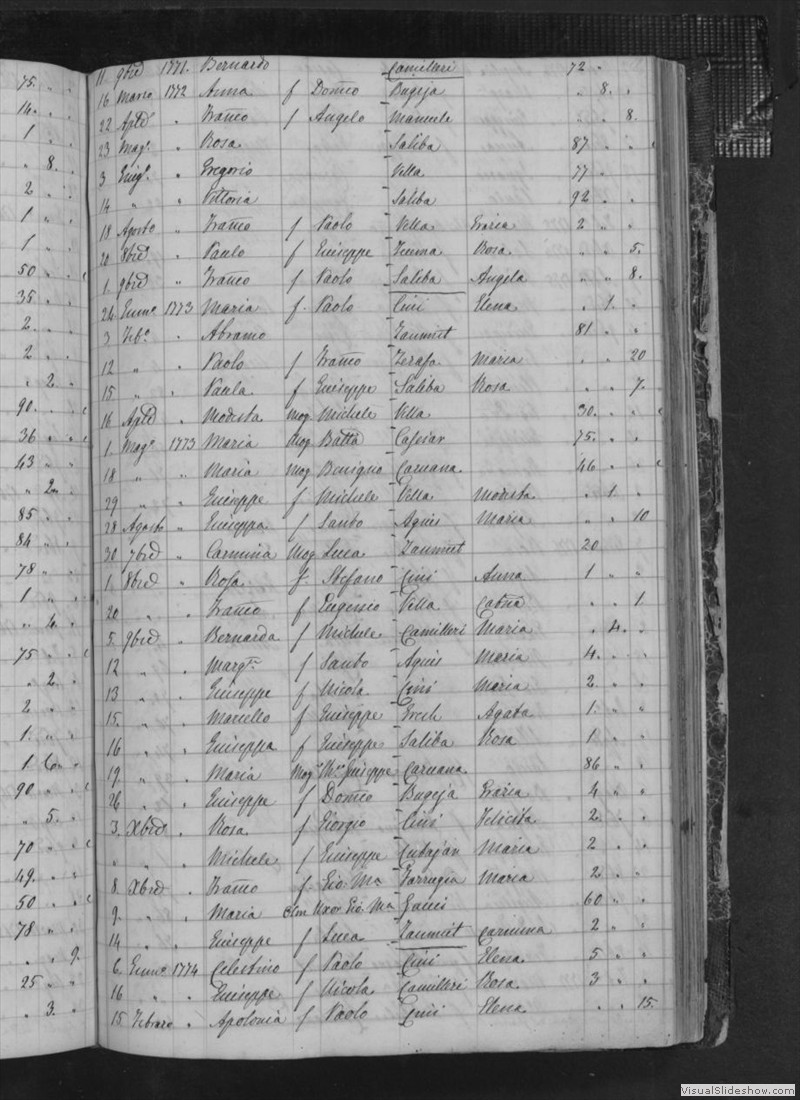 75.
14.
1
8.
2
1
1
50
35
2.
2
2
90.
36
43
2
85
84
78
1
4.
75
2.
2
1.
1 6
90
5.
70
49.
50
78
9.
25
3.
11 9brė 1771. Bernardo Camilleri 72
16 Marzo 1772 Anna f Domco Bugeja 8.
22 Aple " Franco f Angelo Mamente 8.
23 Mago " Rosa Saliba 87
3 Giugo " Gregorio Vella 77
14 " " Vittoria Saliba 92
18 Agosto " Franco f Paolo Vella Grazia 2
20 8brė " Paulo f Giuseppe Zerma Rosa 5.
1. 9brė " Franco f Paolo Saliba Angela 8.
24 Genno 1773 Maria f. Paolo Cini Elena 1.
3 Febo " Abramo Zammit 81
12 " " Paolo f Franco Zerafa Maria 20
15 " " Paula f Giuseppe Saliba Rosa 7.
16 Aple " Modesta mog Michele Vella 30.
1. Mago 1773 Maria mog Batta Cassar 75.
18 " " Maria mog Benigno Caruana 46
29 " " Giuseppe f Michele Vella Modesta 1.
28 Agosto " Giuseppa f Santo Agius Maria 10
30 7brė " Carmina Mog Luca Zammit 20
1. 8brė " Rosa f Stefano Cini Anna 1
20 " " Franco f Eugenio Vella Catna 1
5. 9brė " Bernarda f Michele Camilleri Maria 4.
12 " " Margta f Santo Agius Maria 4.
13 " " Giuseppe f Nicola Cini Maria 2
15. " " Marcello f Giuseppe Grech Agata 1.
16 " " Giuseppa f Giuseppe Saliba Rosa 1
19. " " Maria Mog Giuseppe Caruana 86
26 " " Giuseppe f Domco Bugeja Grazia 4
3. Xbrė " Rosa f Giorgio Cini Felicita 2
" " Michele f Giuseppe Cutajar Maria 2
8. Xbrė " Franco f Gio: Ma Farrugia Maria 2
9. " " Maria olm Uxor Gio: Ma Gauci 60
14 " " Giuseppe f Luca Zammit Carmina 2
6. Genno 1774 Celestino f Paolo Cini Elena 5
16 " " Giuseppe f Nicola Camilleri Rosa 3
15 Febraro " Apolonia f Paolo Cini Elena 15.
VisualSlideshow.com